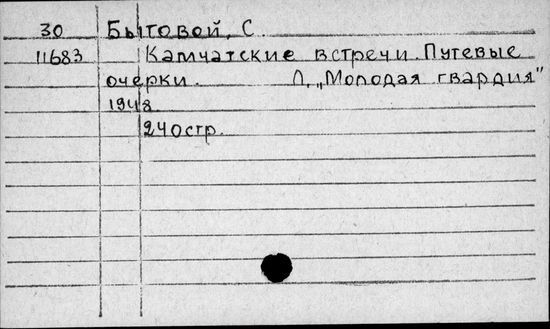 30 Бытовой, С.
11683 Камчатские встречи. Путевые
очерки. Л. „Молодая гвардия"
1948.
240стр.